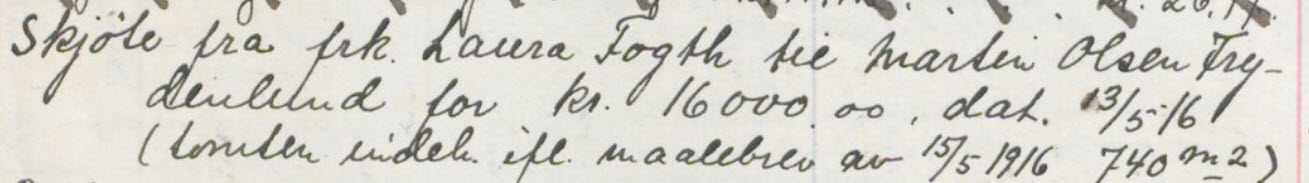 Skjöte fra frk. Laura Fogth til Martin Olsen Fry-
denlund for kr. 16000.00, dat. 13/5-16
(tomten indeh. ifl. maalebrev av 15/5 1916 740 m2)